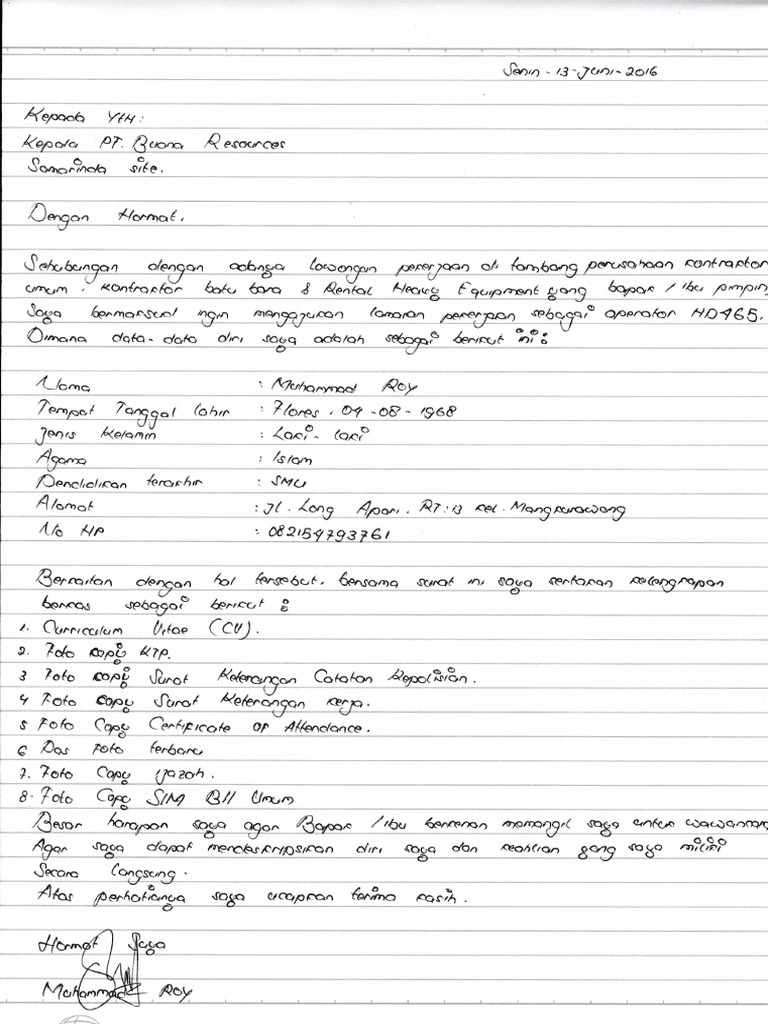 Senin - 13 - Juni - 2016
Kepada YtH:
Kepala PT. Buana Resources
Samarinda site.
Dengan Hormat.
Sehubungan dengan adanya lowongan pekerjaan di tambang perusahaan kontraktor
umum, kontraktor batu bara & Rental Heavy Equipment yang bapak / ibu pimpin,
Saya bermaksud ingin mengajukan lamaran pekerjaan sebagai operator HD465.
Dimana data-data diri saya adalah sebagai berikut ini :
Nama : Muhammad Roy
Tempat Tanggal lahir : Flores, 04-08-1968
Jenis Kelamin : Laki - laki
Agama : Islam
Pendidikan terakhir : SMU
Alamat : Jl. Long Apari. RT:13 kel. Mangkurawang
No HP : 082154793761
Berkaitan dengan hal tersebut, bersama surat ini saya sertakan kelengkapan
berkas sebagai berikut :
1. Curriculum Vitae (CV).
2. Foto copy KTP.
3 Foto copy Surat Keterangan Catatan Kepolisian.
4 Foto copy Surat Keterangan kerja.
5 Foto Copy Certificate OF Attendance.
6 Pas Foto terbaru
7. Foto Copy ijazah.
8. Foto Copy SIM BII Umum
Besar harapan saya agar Bapak / ibu berkenan memangil saya untuk wawancara
Agar saya dapat mendeskripsikan diri saya dan keahlian yang saya miliki
Secara langsung.
Atas perhatianya saya ucapkan terima kasih.
Hormat Saya
Muhammad Roy